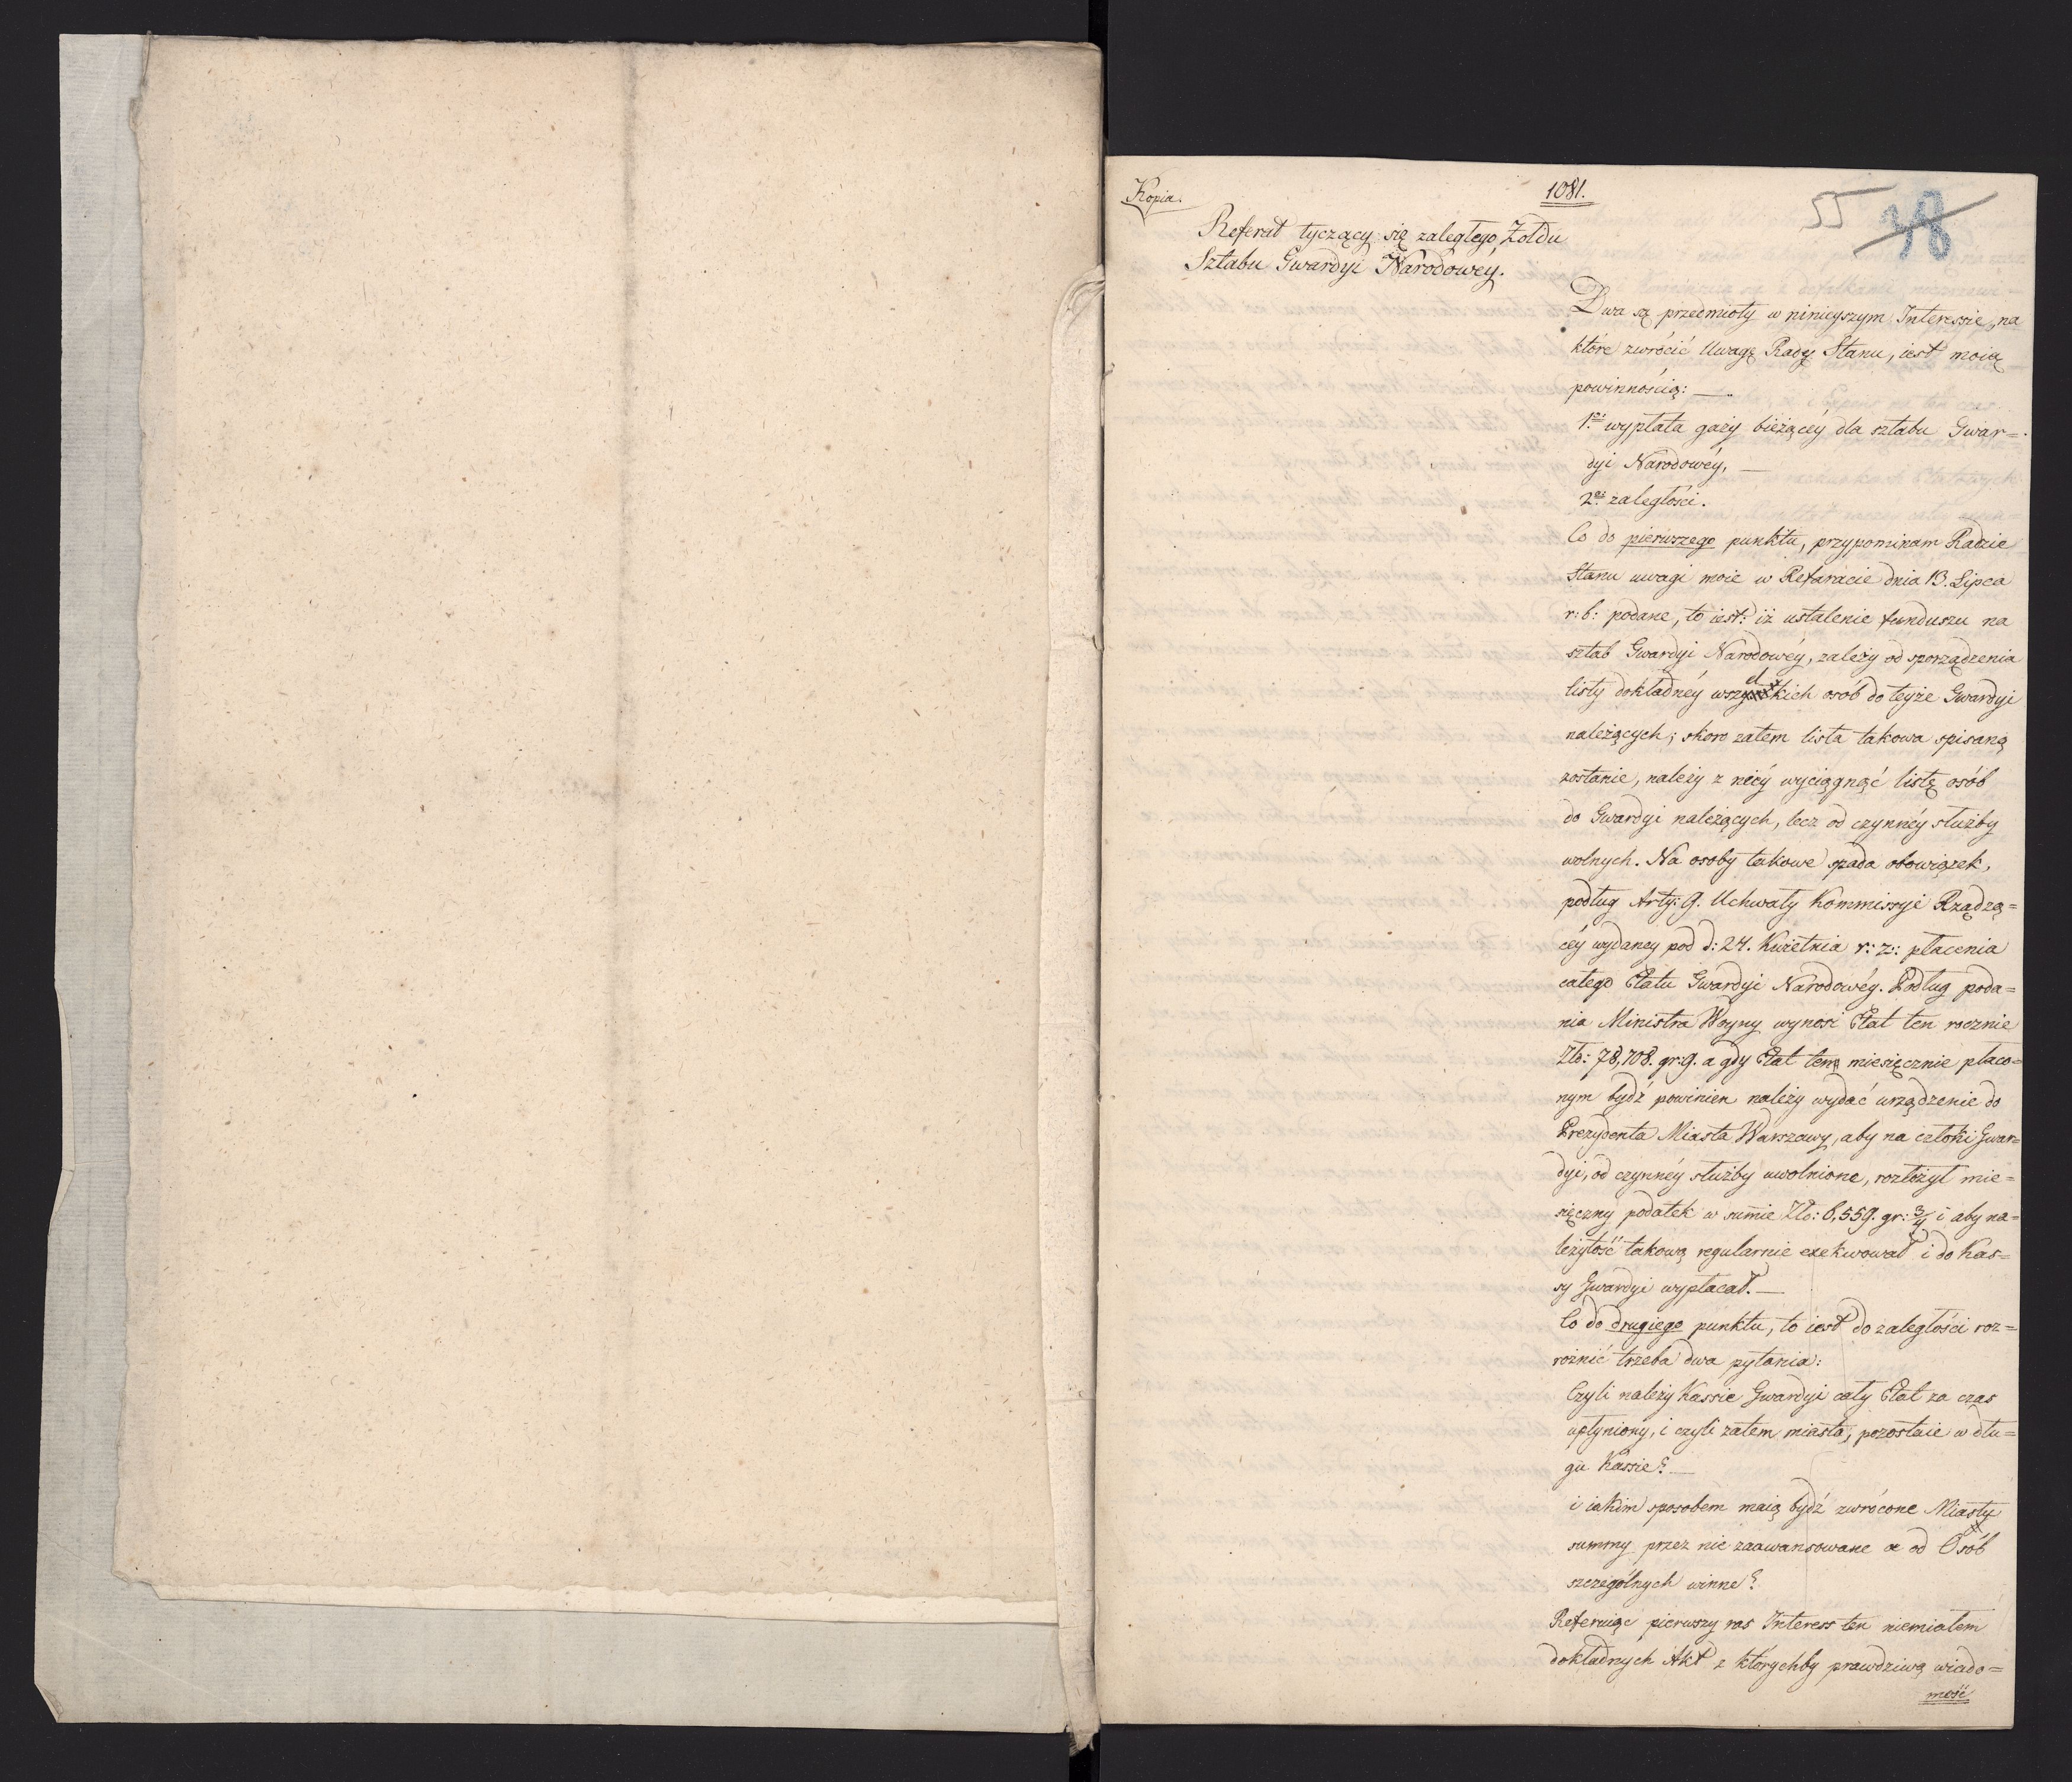 Kopia.
1081.
55 48
Referat tyczący się zaległego Żołdu
Sztabu Gwardyi Narodowéy.
Dwa są przedmioty w ninieyszym Interessie, na
które zwrócić Uwagę Rady Stanu, iest moią
powinnością: —
1o: wypłata gaży bieżącéy dla sztabu Gwar=
dyi Narodowéy, —
2o: zaległości.
Co do pierwszego punktu, przypominam Radzie
Stanu uwagi moie w Referacie dnia 13. Lipca
r: b: podane, to iest: iż ustalenie funduszu na
sztab Gwardyi Narodowéy, zależy od sporządzenia
listy dokładnéy wszystkich osób do teyże Gwardyi
należących; skoro zatem lista takowa spisaną
zostanie, należy z niéy wyciągnąć listę osób
do Gwardyi należących, lecz od czynnéy służby
wolnych. Na osoby takowe spada obowiązek,
podług Arty: 9. Uchwały Kommissyi Rządzą=
céy wydaney pod d: 24. Kwietnia r: z: płacenia
całego Etatu Gwardyi Narodowéy. Podług poda=
nia Ministra Woyny wynosi Etat ten rocznie
Zło: 78,708. gr: 9. a gdy Etat ten miesięcznie płaco=
nym bydź powinien należy wydać urządzenie do
Prezydenta Miasta Warszawy, aby na członki Gwar=
dyi, od czynnéy służby uwolnione, rozłożył mie=
sięczny podatek w summie Zło: 6,559. gr: 3/4 i aby na=
leżytość takową regularnie exekwował i do Kas=
sy Gwardyi wypłacał. —
Co do drugiego punktu, to iest do zaległości roz=
rożnić trzeba dwa pytania:
Czyli należy Kassie Gwardyi cały Etat za czas
upłyniony, i czyli zatem miasto, pozostaie w dłu=
gu Kassie? —
i iakim sposobem maią bydź zwrócone Miastu
summy przez nie zaawansowane a od Osób
szczególnych winne?
Referuiąc pierwszy raz Interess ten niemiałem
dokładnych Akt z którychby prawdziwą wiado=
mość